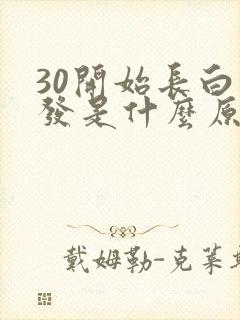 30開始長白
發是什麼原
戴姆勒-克萊